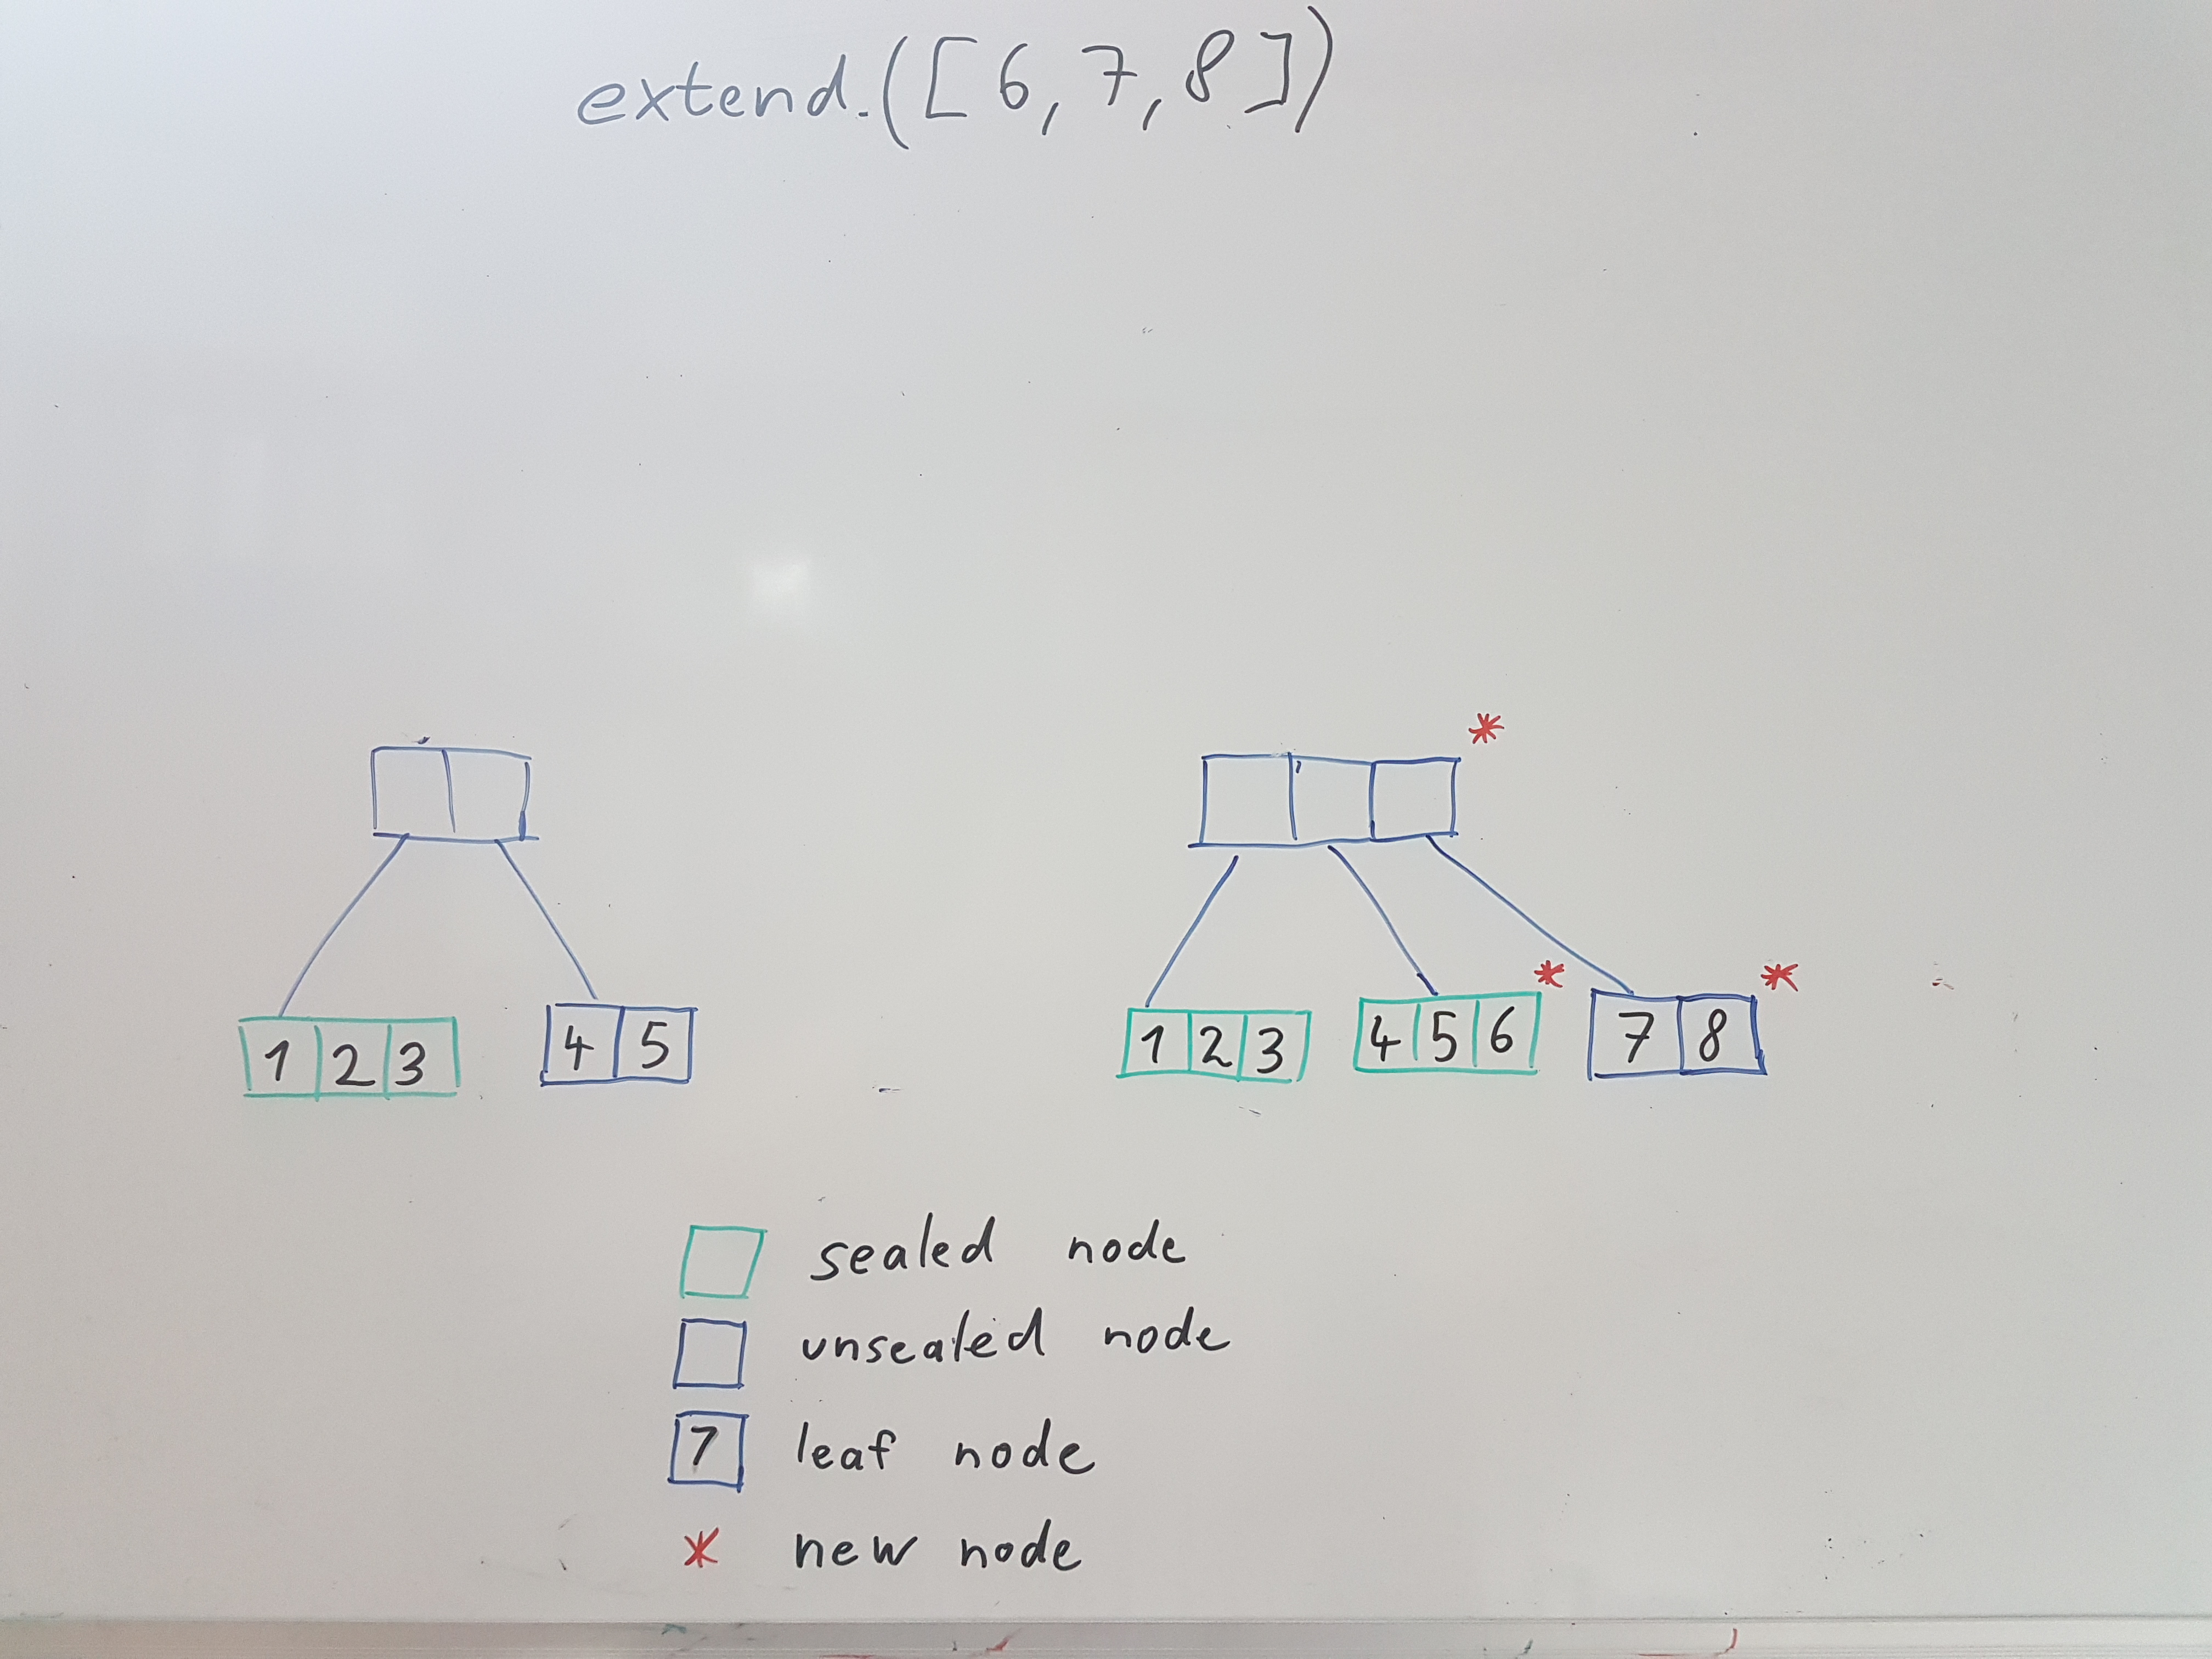 extend.([6,7,8])
* 
1 2 3 4 5 1 2 3 4 5 6 * 7 8 *
sealed node
unsealed node
7 leaf node
* new node